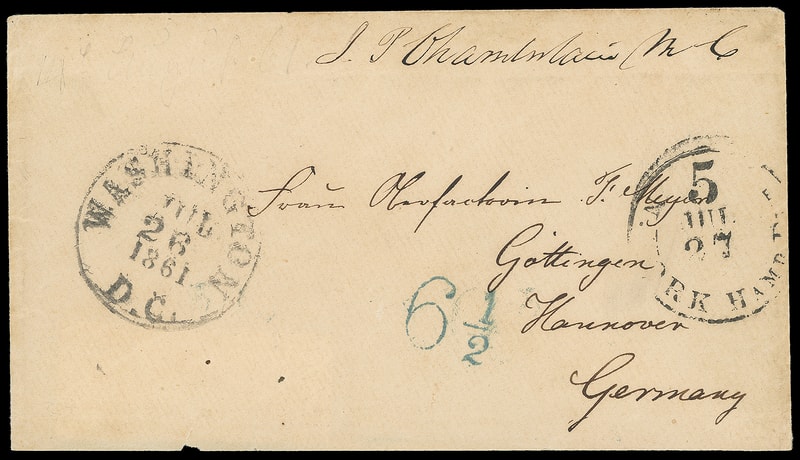 J. P. Chamberlain M C
WASHINGTON
JUL
26
1861
D.C.
Frau Oberfactorin F. Meyer
Göttingen
Hannover
Germany
6 1/2
5
JUL
27
HAMB